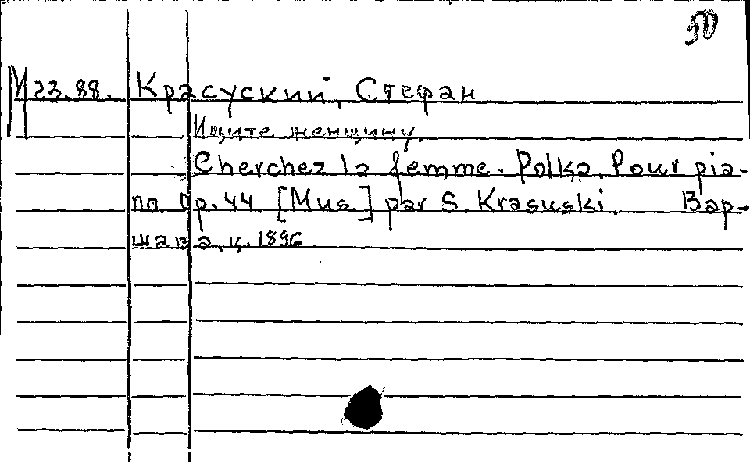 50
М 23.88. Красуский, Стефан
Ищите женщину.
Cherchez la femme. Polka. Pour pia-
no Op. 44 [Mus] par S. Krasuski. Вар-
шава, ц. 1896